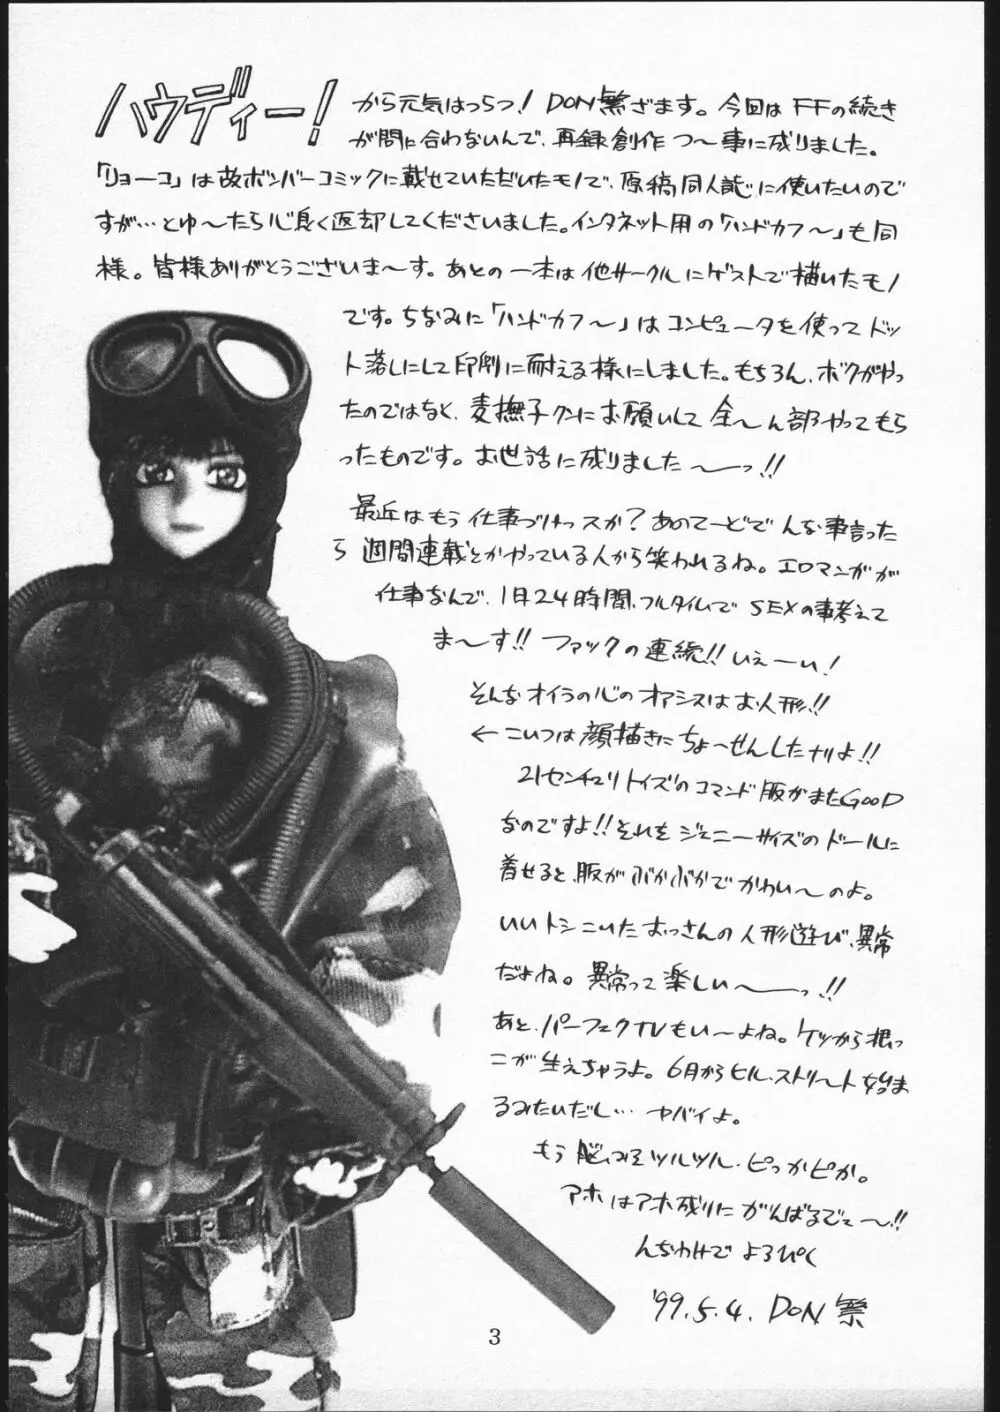 ハウディー!
から元気はつらつ! DON繁ざます。今回はFFの続き
が間に合わないんで、再録創作つ〜事に成りました。
「リョーコ」は故ボンバーコミックに載せていただいたモノで、原稿同人誌に使いたいので
すが…とゆ〜たら心良く返却してくださいました。インタネット用の「ハンドカフ〜」も同
様。皆様ありがとうございま〜す。あとの一本は他サークルにゲストで描いたモノ
です。ちなみに「ハンドカフ〜」はコンピュータを使ってドッ
ト落しにして印刷に耐える様にしました。もちろん、ボクがやっ
たのではなく、麦撫子クンにお願いして全〜ん部やってもら
ったものです。お世話に成りました〜っ!!
最近はもう仕事づけっスか?あのてーどでんな事言った
ら週間連載とかやっている人から笑われるね。エロマンガが
仕事なんで、1日24時間、フルタイムでSEXの事考えて
ま〜す!!ファックの連続!!いえーい!
そんなオイラの心のオアシスはお人形!!
←こいつは顔描きにちょーせんしたナリよ!!
21センチュリトイズのコマンド服がまたGOOD
なのですよ!!それをジェニーサイズのドールに
着せると、服がぶかぶかでかわい〜のよ。
いいトシこいたおっさんの人形遊び、異常
だよね。異常って楽しい〜っ!!
あと、パーフェクTVもい〜よね。ケツから根っ
こが生えちゃうよ。6月からヒル・ストリート始ま
るみたいだし…ヤバイよ。
もう脳みそツルツル・ピッカピか。
アホはアホ成りにがんばるでェ〜!!
んぢわけでよろぴく
'99.5.4. DON繁
3